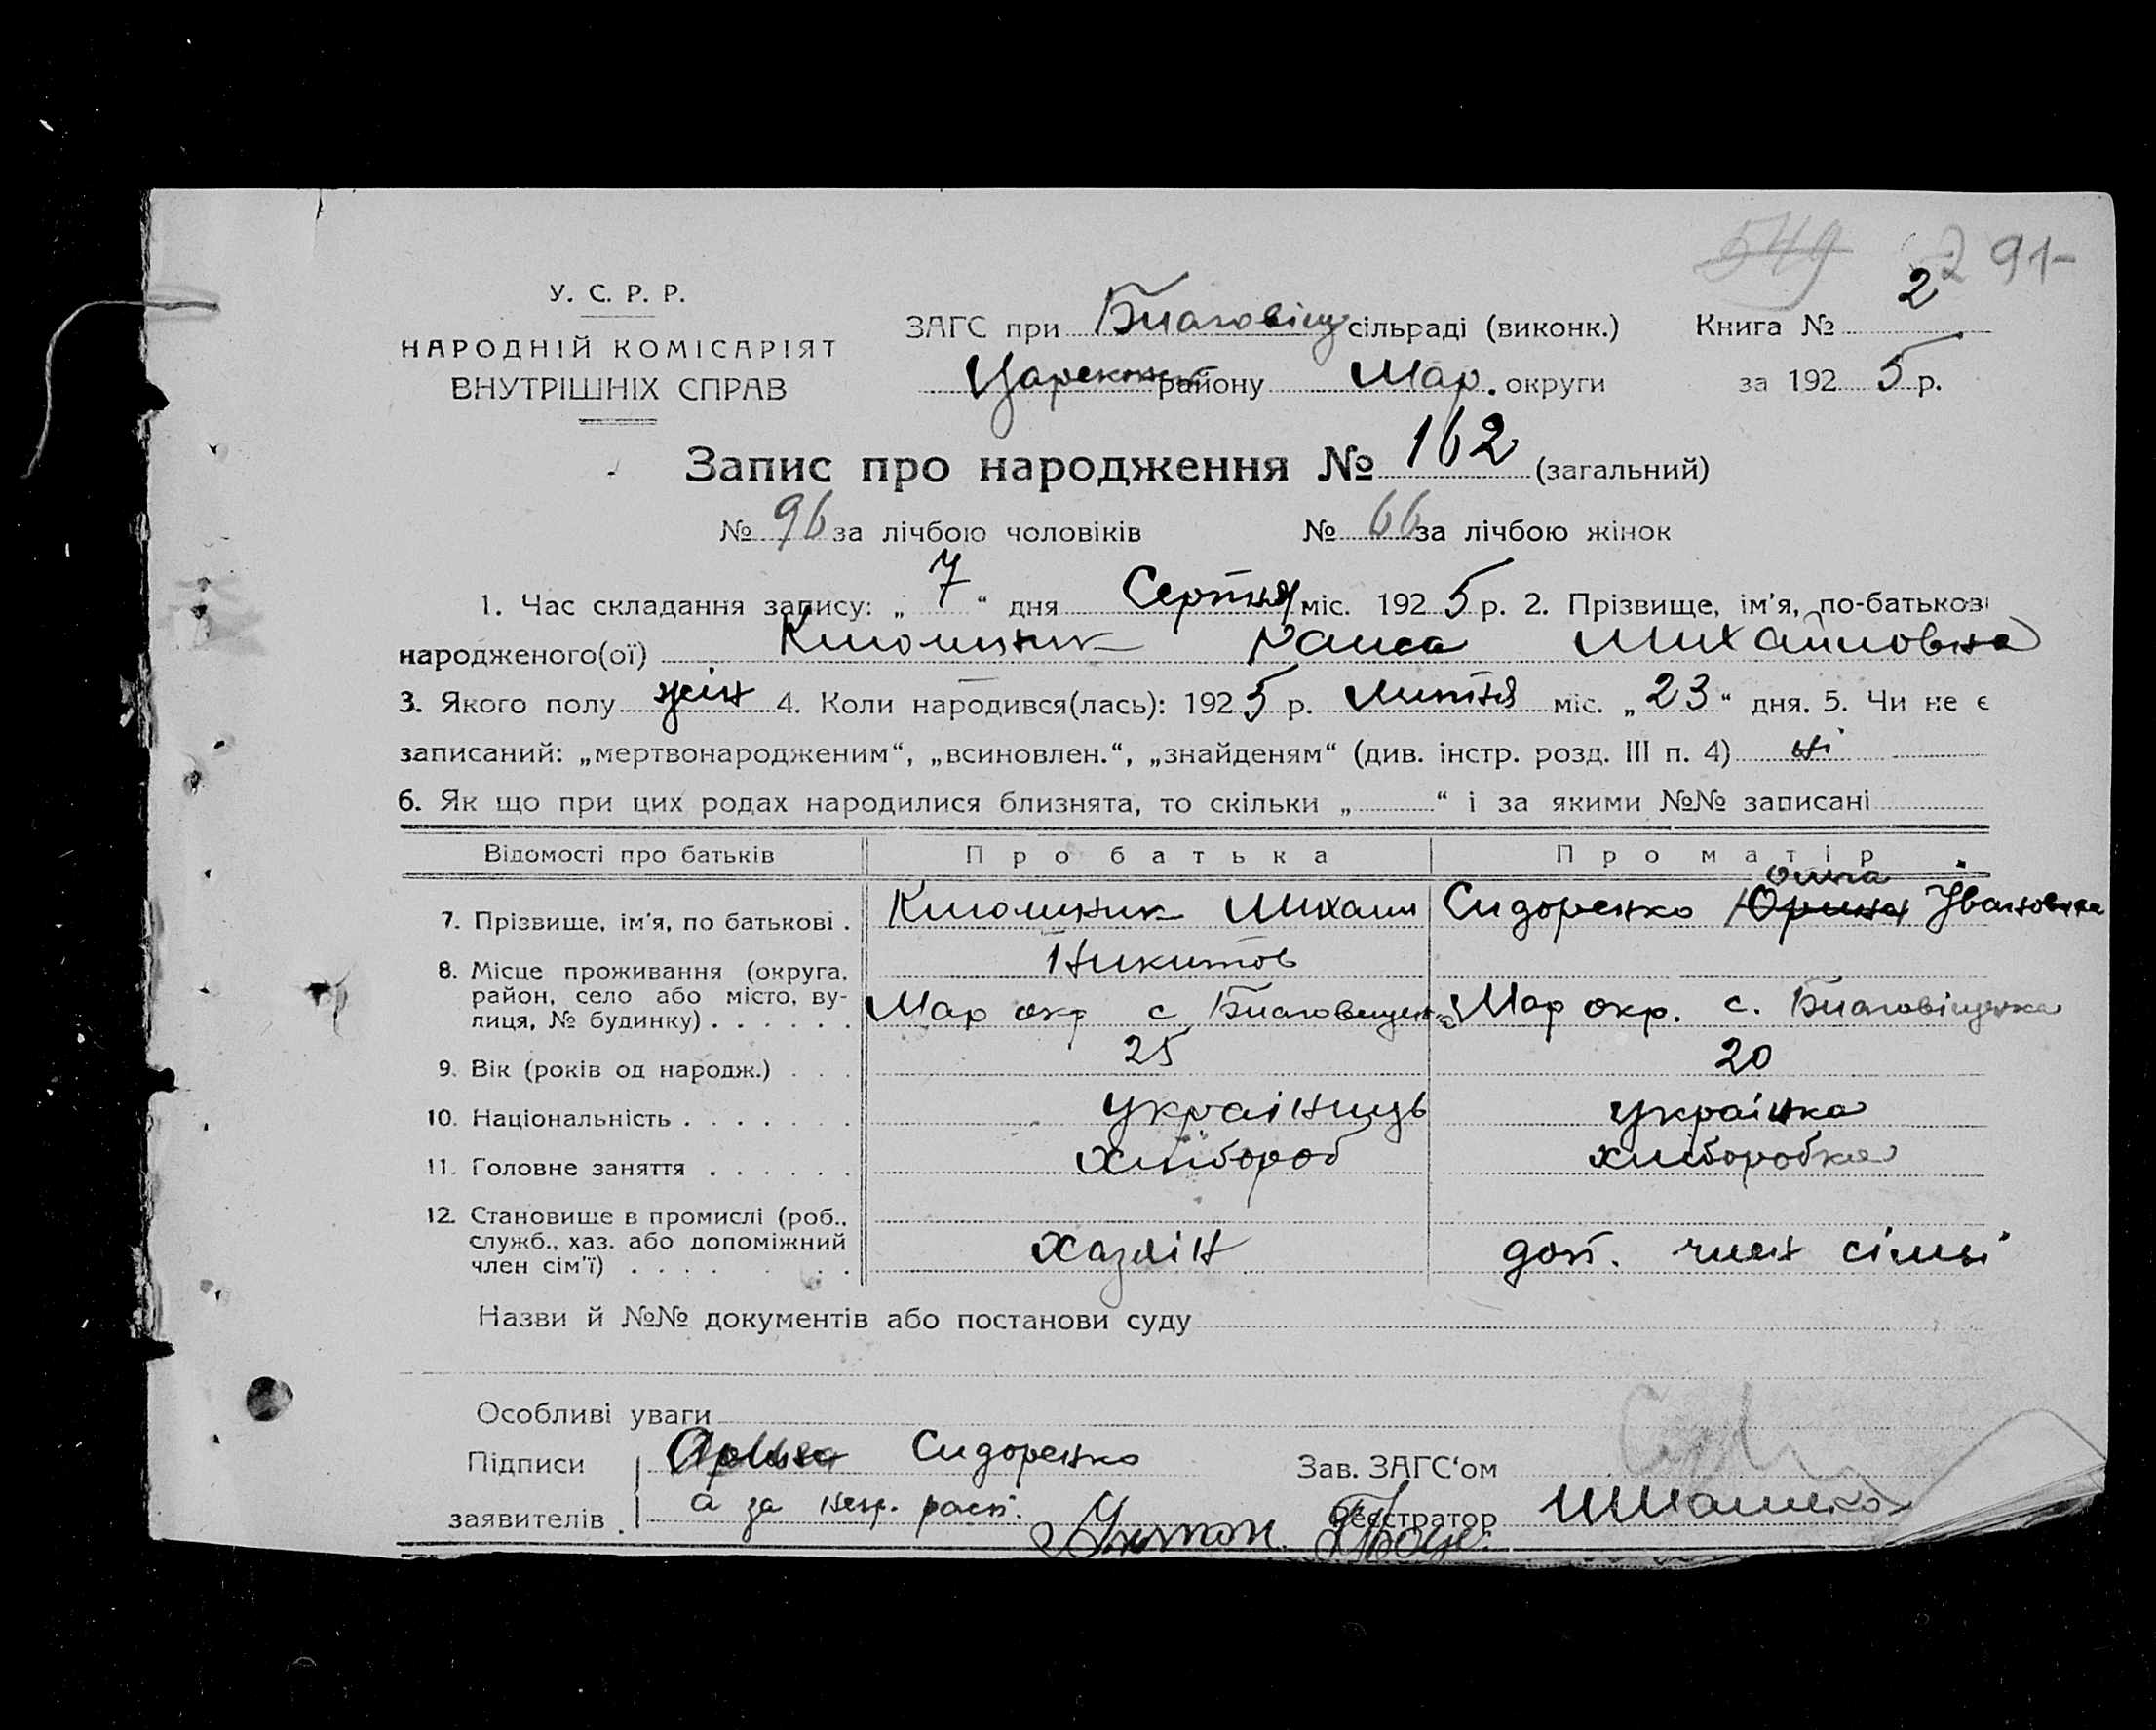 549 291
У. С. Р. Р.
НАРОДНІЙ КОМІСАРІЯТ
ВНУТРІШНІХ СПРАВ
ЗАГС при Благовіщ сільраді (виконк.) Книга № 2
Царекон району Мар. округи за 1925 р.
Запис про народження № 162 (загальний)
№ 96 за лічбою чоловіків № 66 за лічбою жінок
1. Час складання запису: „7“ дня Серпня міс. 1925 р. 2. Прізвище, ім'я, по-батькові
народженого(ої) Раиса Михайловна
3. Якого полу жін 4. Коли народився(лась): 1925 р. липня міс. „23“ дня. 5. Чи не є
записаний: „мертвонародженим“, „всиновлен.“, „знайденям“ (див. інстр. розд. III п. 4) ні
6. Як що при цих родах народилися близнята, то скільки „ “ і за якими №№ записані
Відомості про батьків Про батька Про матір
7. Прізвище, ім'я, по батькові . Михаил Никитов Сидоренко Юрина Івановна
8. Місце проживання (округа, район, село або місто, вулиця, № будинку) . . . . . . Мар окр с Благовещен Мар окр. с. Благовіщенка
9. Вік (років од народж.) . . . 25 20
10. Національність . . . . . . . українець українка
11. Головне заняття . . . . . . хлібороб хліборобка
12. Становище в промислі (роб., служб., хаз. або допоміжний член сім'ї) . . . . хазяїн доп. член сімьї
Назви й №№ документів або постанови суду
Особливі уваги
Підписи Сидоренко Зав. ЗАГС'ом
а за негр. расп.
заявителів . Реєстратор